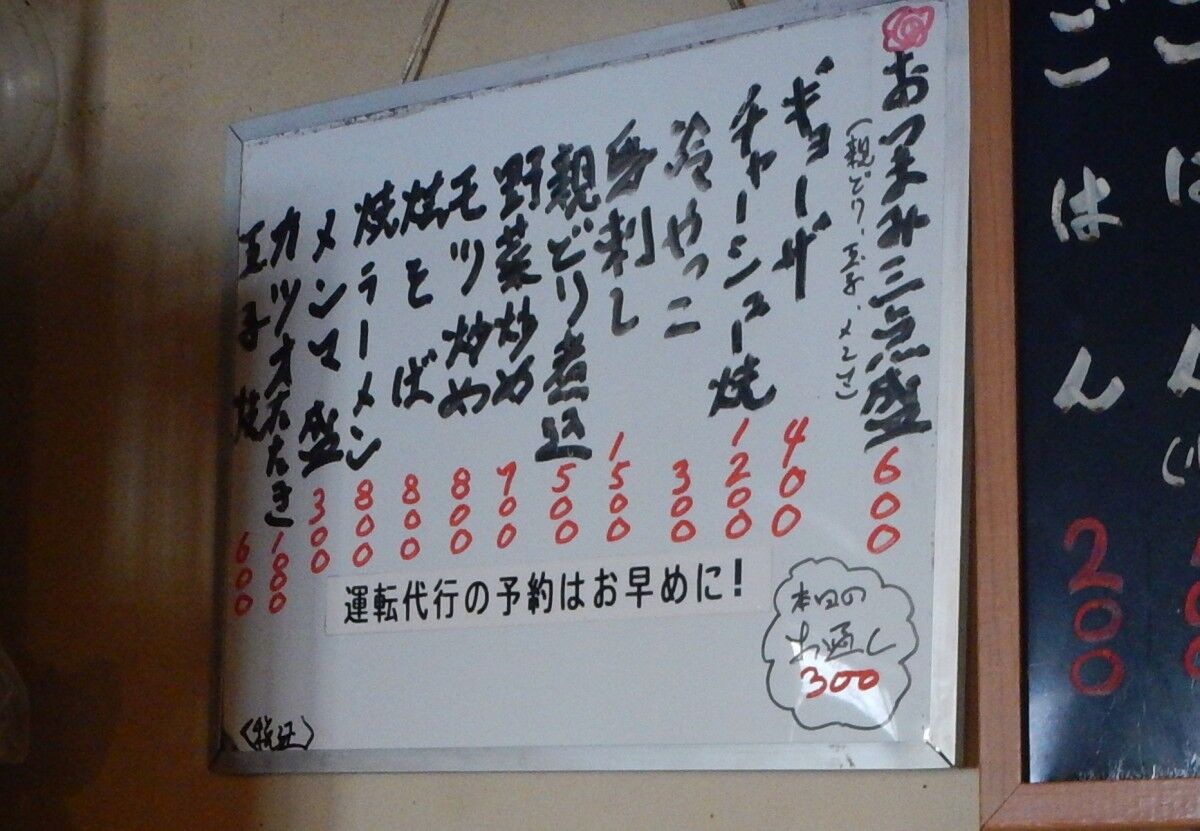 おつまみ三点盛 600
(親どり、玉子、メンマ)
ギョーザ 400
チャーシュー焼 1200
冷やっこ 300
馬刺し 1500
親どり煮込 500
野菜炒め 700
モツ炒め 800
焼そば 800
焼ラーメン 800
メンマ盛 300
カツオたたき 1000
玉子焼 600
運転代行の予約はお早めに！
本日の
お通し
300
〈税込〉
ごはん 200